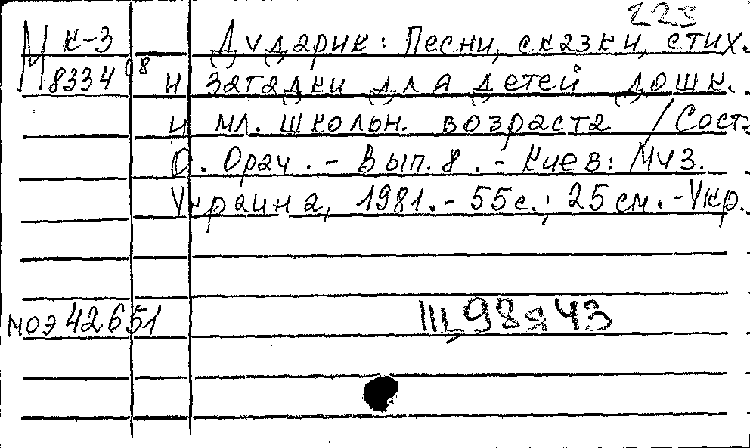 223
М К-3 Дударик: Песни, сказки, стих.
8334/8 и загадки для детей дошк.
и мл. школьн. возраста / Сост:
О. Орач. - Вып. 8. - Киев: Муз.
Украина, 1981. - 55 с.; 25 см. - Укр.
моэ 42651 Щ98я43